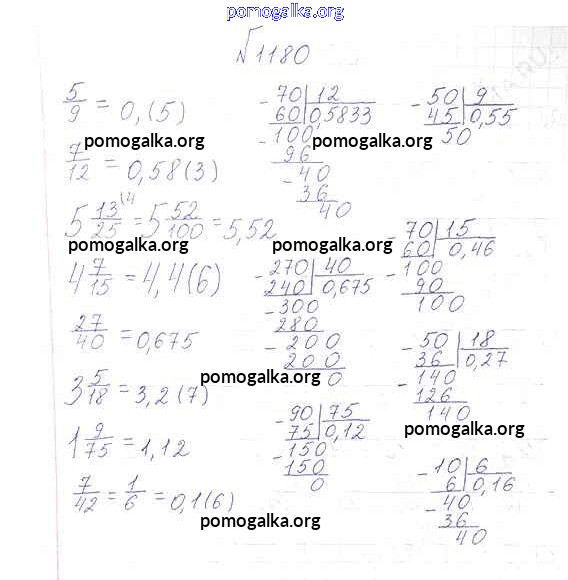 pomogalka.org
№1180
5/9 = 0,(5)
-70 | 12
60 | 0,5833
-100
96
-40
36
40
-50 | 9
45 | 0,55
50
pomogalka.org
pomogalka.org
7/12 = 0,58(3)
5 13/25 (4 = 5 52/100 = 5,52
pomogalka.org
pomogalka.org
-70 | 15
60 | 0,46
-100
90
100
4 7/15 = 4,4(6)
-270 | 40
240 | 0,675
-300
280
-200
200
0
27/40 = 0,675
-50 | 18
36 | 0,27
-140
126
140
pomogalka.org
3 5/18 = 3,2(7)
-90 | 75
75 | 0,12
-150
150
0
pomogalka.org
1 9/75 = 1,12
-10 | 6
6 | 0,16
-40
36
40
7/42 = 1/6 = 0,1(6)
pomogalka.org